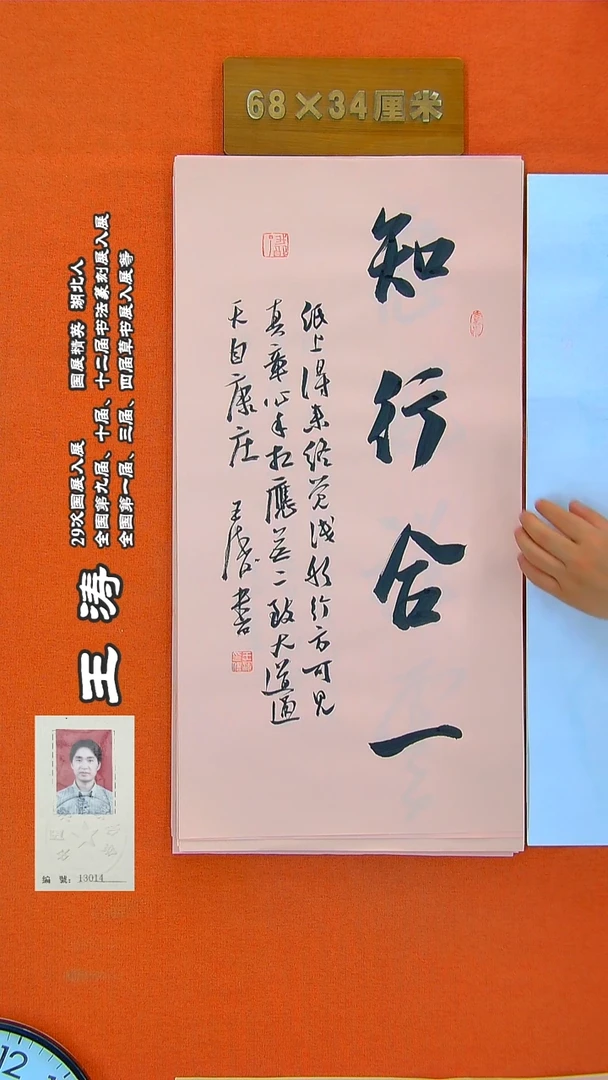 68×34厘米
知行合一
紙上得来終觉浅躬行方可见
真章心手相應无二致大道通
天自康庄 王涛书
29次国展入展 国展精英 湖北人
全国第九届、十届、十二届书法篆刻展入展
全国第一届、三届、四届草书展入展等
王涛
編 號：13014
12